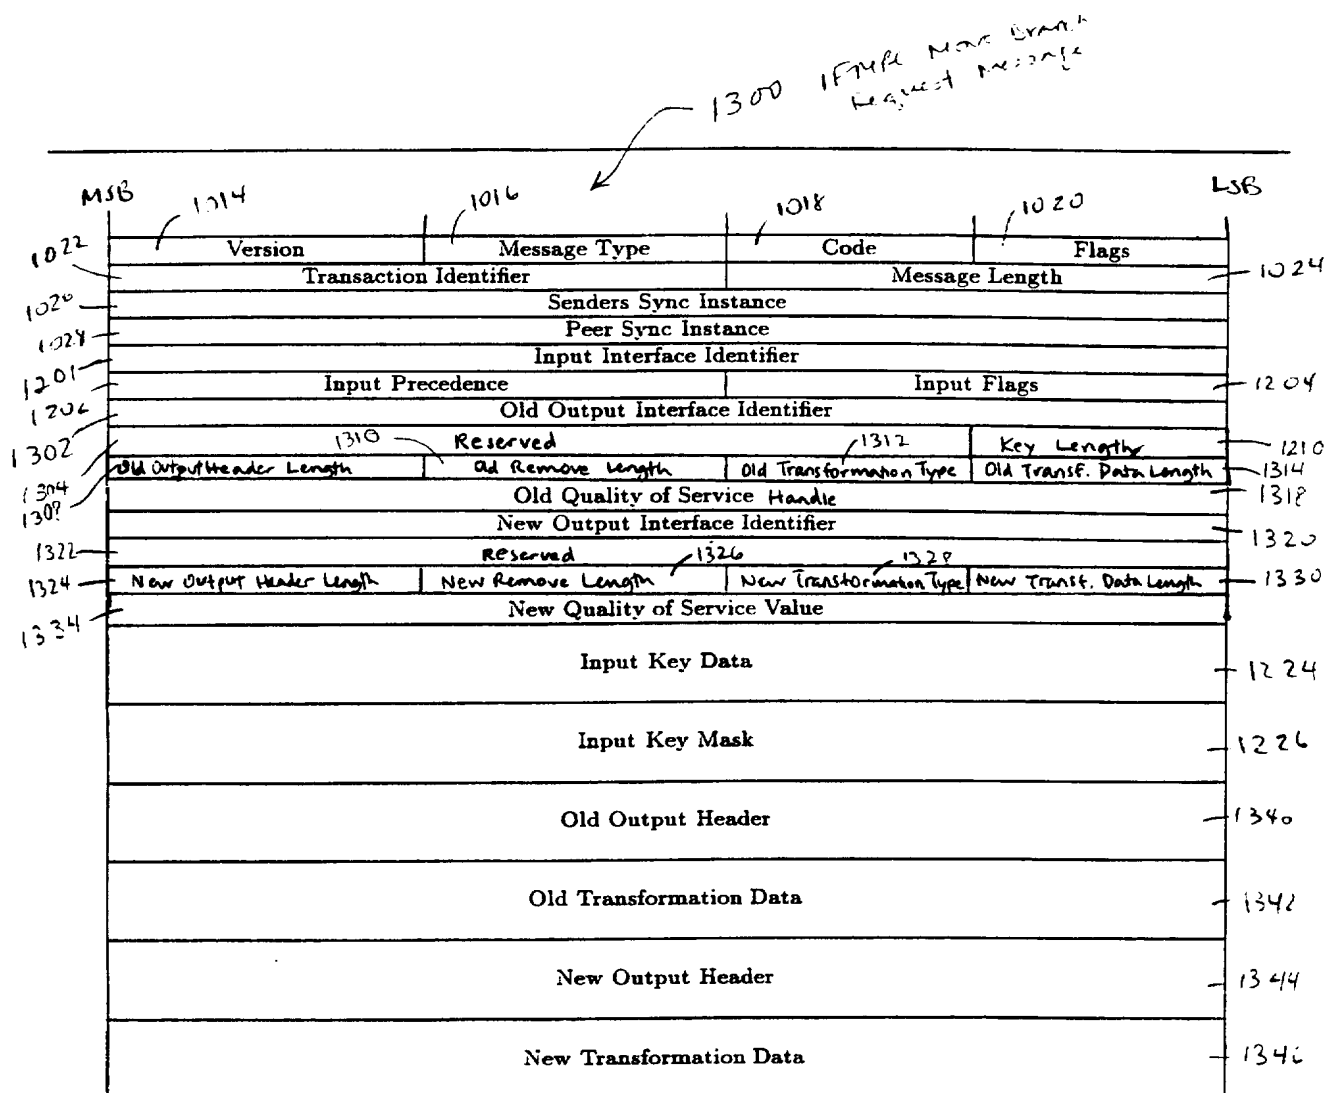 1300 IFMP Move Branch
Request Message
MSB LSB
1014 1016 1018 1020
Version Message Type Code Flags
1022 Transaction Identifier Message Length 1024
Senders Sync Instance
1028 Peer Sync Instance
1201 Input Interface Identifier
Input Precedence Input Flags 1204
1302 Old Output Interface Identifier
1304 Reserved Key Length 1210
1310 1312
Old Output Header Length Old Remove Length Old Transformation Type Old Transf. Data Length 1314
Old Quality of Service Handle 1318
New Output Interface Identifier 1320
1322 Reserved
1326 1328
1324 New Output Header Length New Remove Length New Transformation Type New Transf. Data Length 1330
1334 New Quality of Service Value
Input Key Data 1224
Input Key Mask 1226
Old Output Header 1340
Old Transformation Data 1342
New Output Header 1344
New Transformation Data